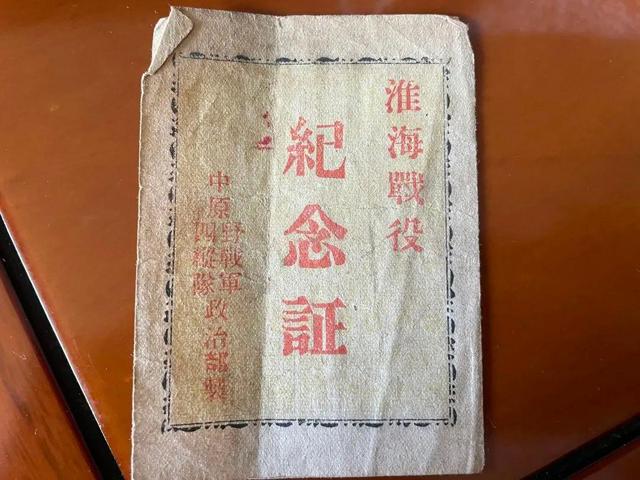 淮海戰役
紀念証
中原野戰軍
四縱隊政治部製